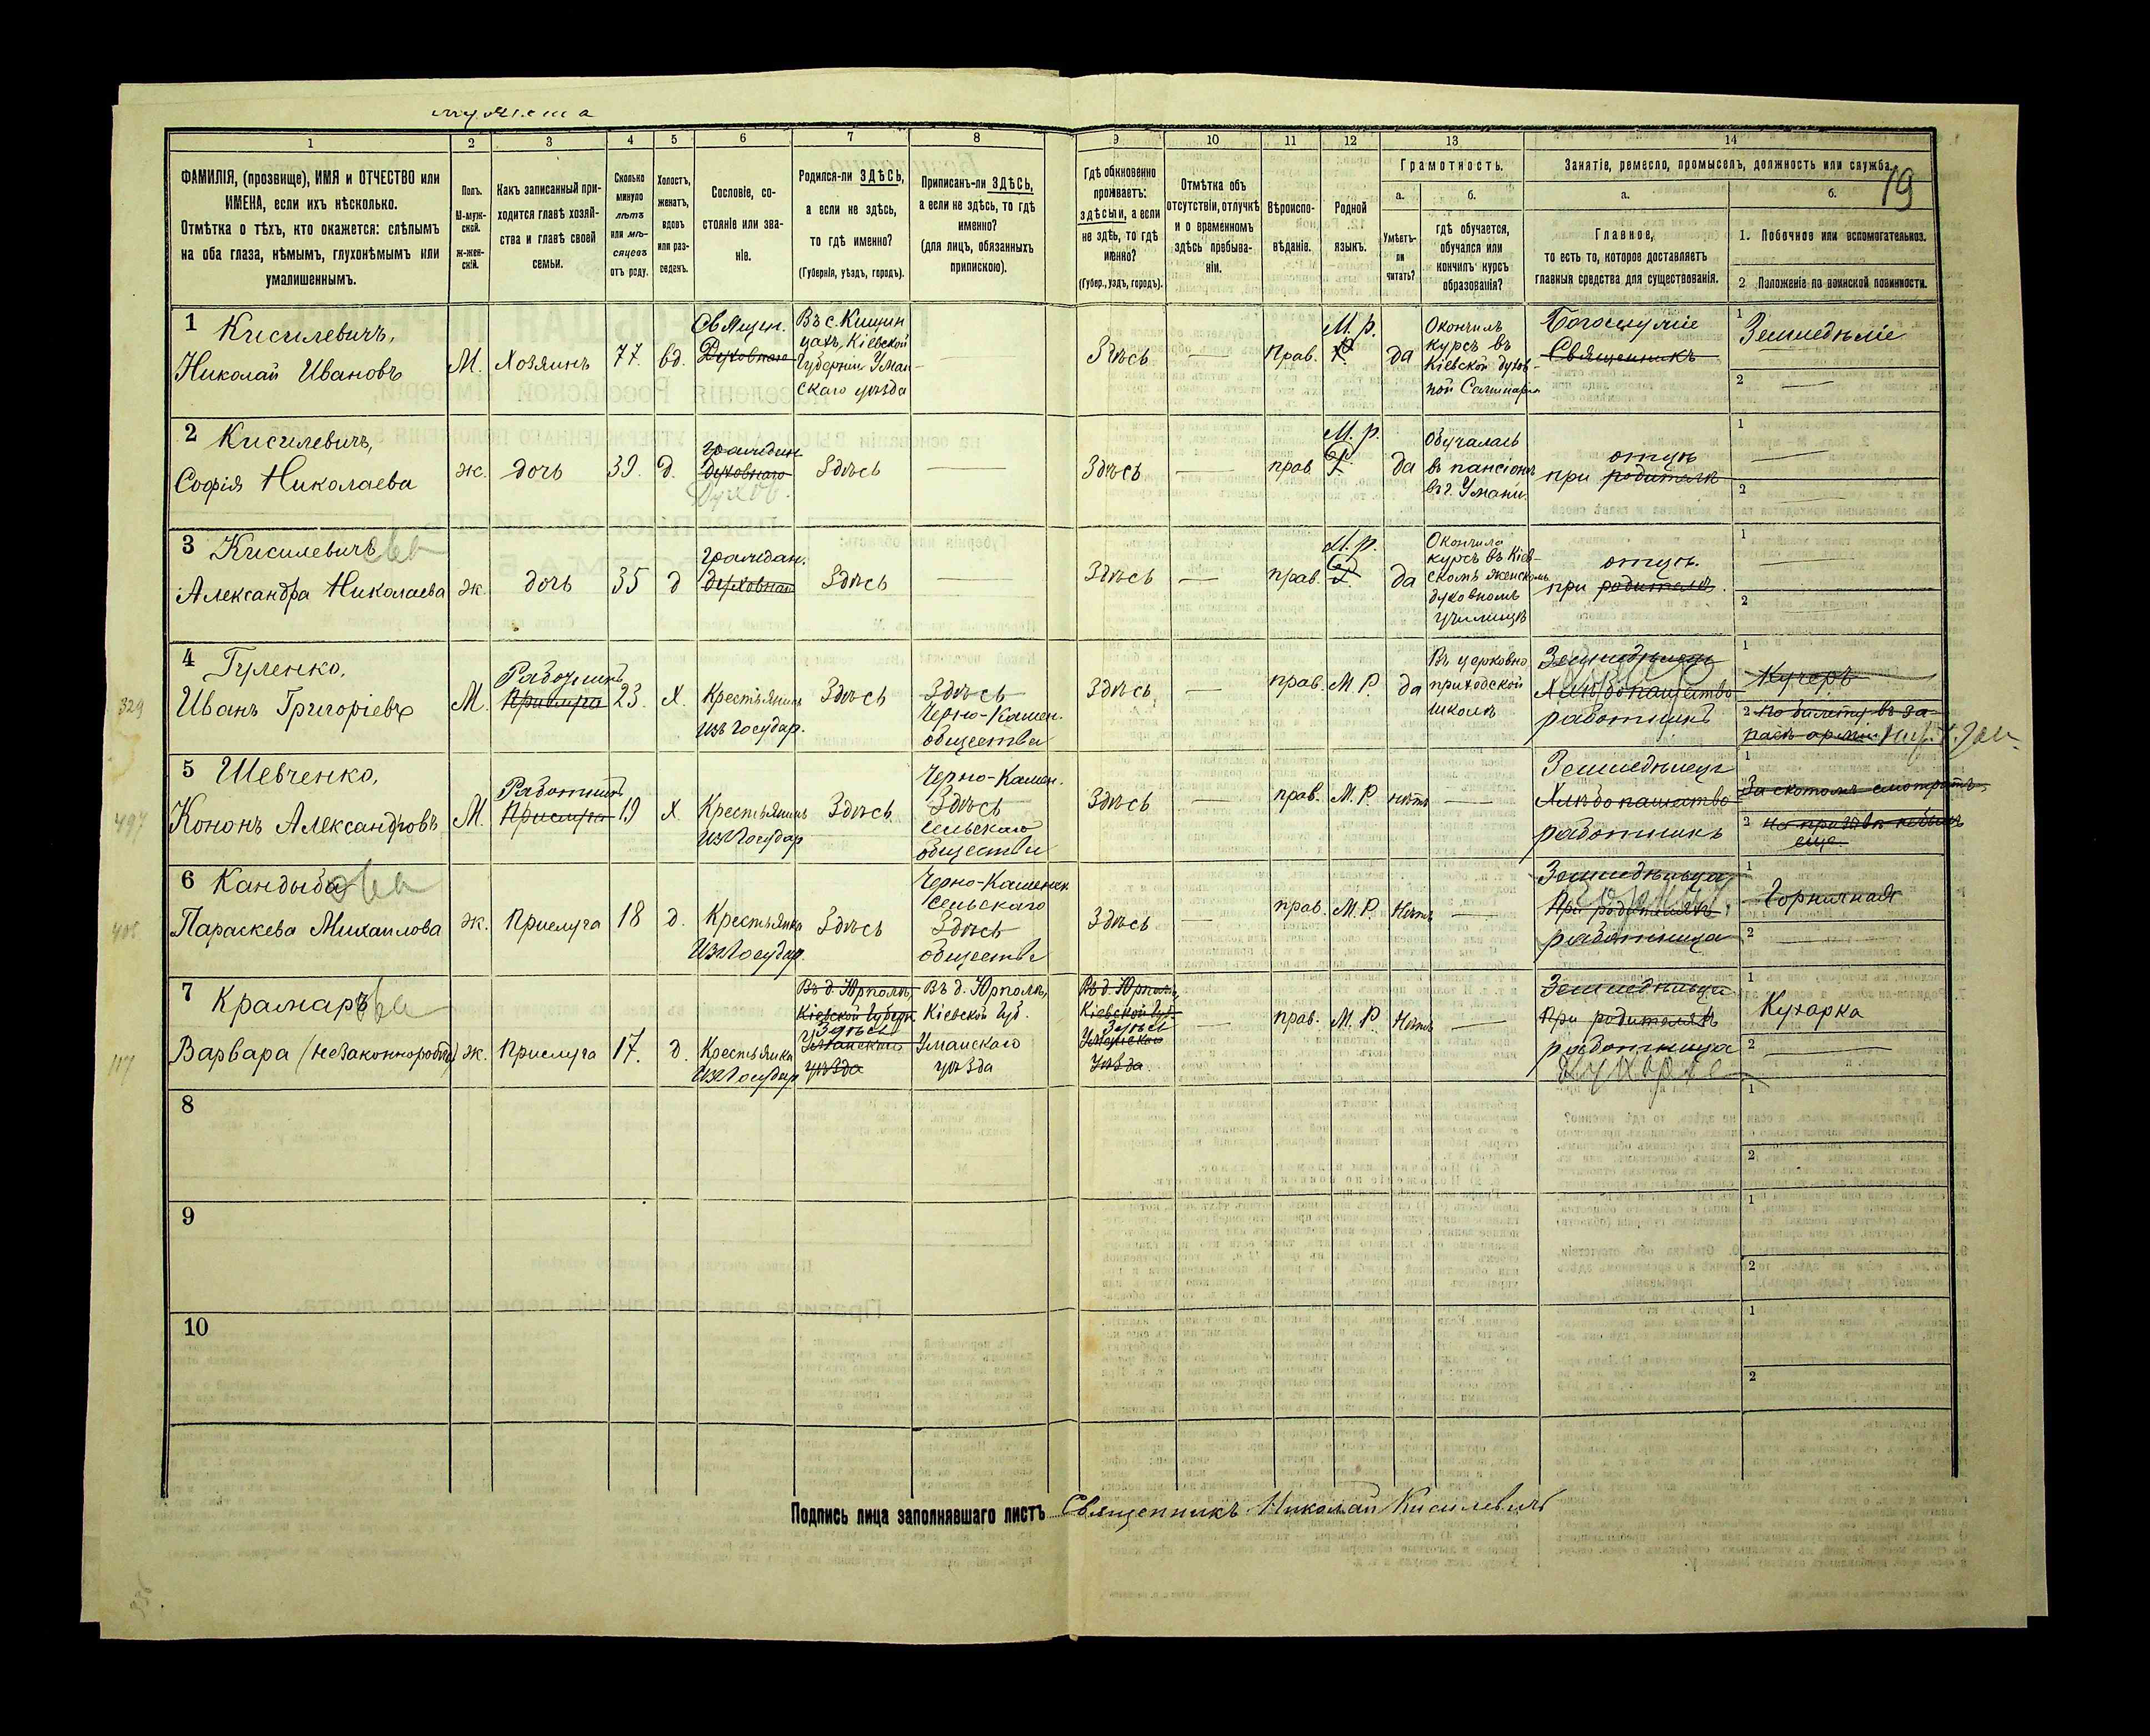 1
2
3
4
5
6
7
8
9
10
11
12
13
14
ФАМИЛІЯ, (прозвище), ИМЯ и ОТЧЕСТВО или
ИМЕНА, если ихъ нѣсколько.
Отмѣтка о тѣхъ, кто окажется: слѣпымъ
на оба глаза, нѣмымъ, глухонѣмымъ или
умалишеннымъ.
Полъ.
М-муж-
ской.
Ж-жен-
скій.
Какъ записанный при-
ходится главѣ хозяй-
ства и главѣ своей
семьи.
Сколько
минуло
лѣтъ
или мѣ-
сяцевъ
отъ роду.
Холостъ,
женатъ,
вдовъ
или раз-
веденъ.
Сословіе, со-
стояніе или зва-
ніе.
Родился-ли ЗДѢСЬ,
а если не здѣсь,
то гдѣ именно?
(Губернія, уѣздъ, городъ).
Приписанъ-ли ЗДѢСЬ,
а если не здѣсь, то гдѣ
именно?
(для лицъ, обязанныхъ
припискою).
Гдѣ обыкновенно
проживаетъ:
здѣсь-ли, а если
не здѣсь, то гдѣ
именно?
(Губер., уѣздъ, городъ).
Отмѣтка объ
отсутствіи, отлучкѣ
и о временномъ
здѣсь пребыва-
ніи.
Вѣроиспо-
вѣданіе.
Родной
языкъ.
Грамотность.
а.
Умѣетъ-
ли
читать?
б.
гдѣ обучается,
обучался или
кончилъ курсъ
образованія?
Занятіе, ремесло, промыселъ, должность или служба.
19
а.
Главное,
то есть то, которое доставляетъ
главныя средства для существованія.
б.
1. Побочное или вспомогательное.
2 Положеніе по воинской повинности.
1 Кисилевичъ,
Николай Ивановъ
М.
Хозяинъ
77.
вд.
Священ.
Духовнаго
Въ с.
Кіевской
Губерніи Уман-
скаго уѣзда
Здѣсь
Прав.
М. р.
да
Окончилъ
курсъ въ
Кіевской духов-
ной Семинаріи
Священникъ
1
Земледѣліе
2
2 Кисилевичъ,
Софія Николаева
ж.
дочь
39.
д.
Духовнаго
Духов.
Здѣсь
Здѣсь
прав.
М. р.
да
Обучалась
въ пансіонѣ
въ г. Умани
отцѣ
при родителѣ
1
2
3 Кисилевичъ
Александра Николаева
ж.
дочь
35
д
граждан.
Духовнаго
Здѣсь
Здѣсь
прав.
М. р.
да
Окончила
курсъ въ Кіев-
скомъ женскомъ
духовномъ
училищѣ
отцѣ.
при родителѣ.
1
2
329
4 Гуленко,
Иванъ Григоріевъ
М.
Работникъ
Прислуга
23.
х.
Крестьянинъ
изъ Государ.
Здѣсь
Здѣсь
Черно-Камен.
общества
Здѣсь
прав.
М. Р.
да
Въ церковно
приходской
школѣ
Земледѣлецъ
Хлѣбопашество
работникъ
1
Кучеръ
2 По билету въ за-
пасѣ арміи
497
5 Шевченко,
Кононъ Александровъ
М.
Работникъ
Прислуга
19
х
Крестьянинъ
изъ Государ
Здѣсь
Черно-Камен.
Здѣсь
сельскаго
общества
Здѣсь
прав.
М. Р.
нѣтъ
Земледѣлецъ
Хлѣбопашество
работникъ
1
За скотомъ смотритъ
2 на призывѣ небылъ
еще.
6 Кандыба
Параскева Михаилова
ж.
Прислуга
18
д.
Крестьянка
изъ Государ.
Здѣсь
Черно-Каменск
сельскаго
Здѣсь
общества
Здѣсь
прав.
М. Р.
Нѣтъ
Земледѣлица
При родителяхъ
работница
1
Горничная
2
117
7 Крамарь
Варвара (незаконнорожд)
ж.
Прислуга
17.
д.
Крестьянка
изъ Государ
Въ д. Юрполѣ,
Кіевской Губерн.
Здѣсь
Уманскаго
уѣзда
Въ д. Юрполѣ,
Кіевской Губ.
Уманскаго
уѣзда
Въ д. Юрполѣ,
Кіевской Губ.
Здѣсь
Уманскаго
уѣзда
прав.
М. Р.
Нѣтъ
Земледѣлица
При родителяхъ
работница
Кухарка
1
Кухарка
2
8
1
2
9
1
2
10
1
2
Подпись лица заполнявшаго листъ Священникъ Николай Кисилевичъ